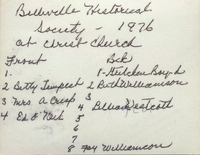 Belleville Historical
Society - 1976
at Christ Church
Front Back
1. 1- Gretchen Boyd
2 Betty Tempest 2 Beth Williamson
3 Mrs A Crisp 3
4 Ed O'Neil 4
5
6
7
8 Fay Williamson